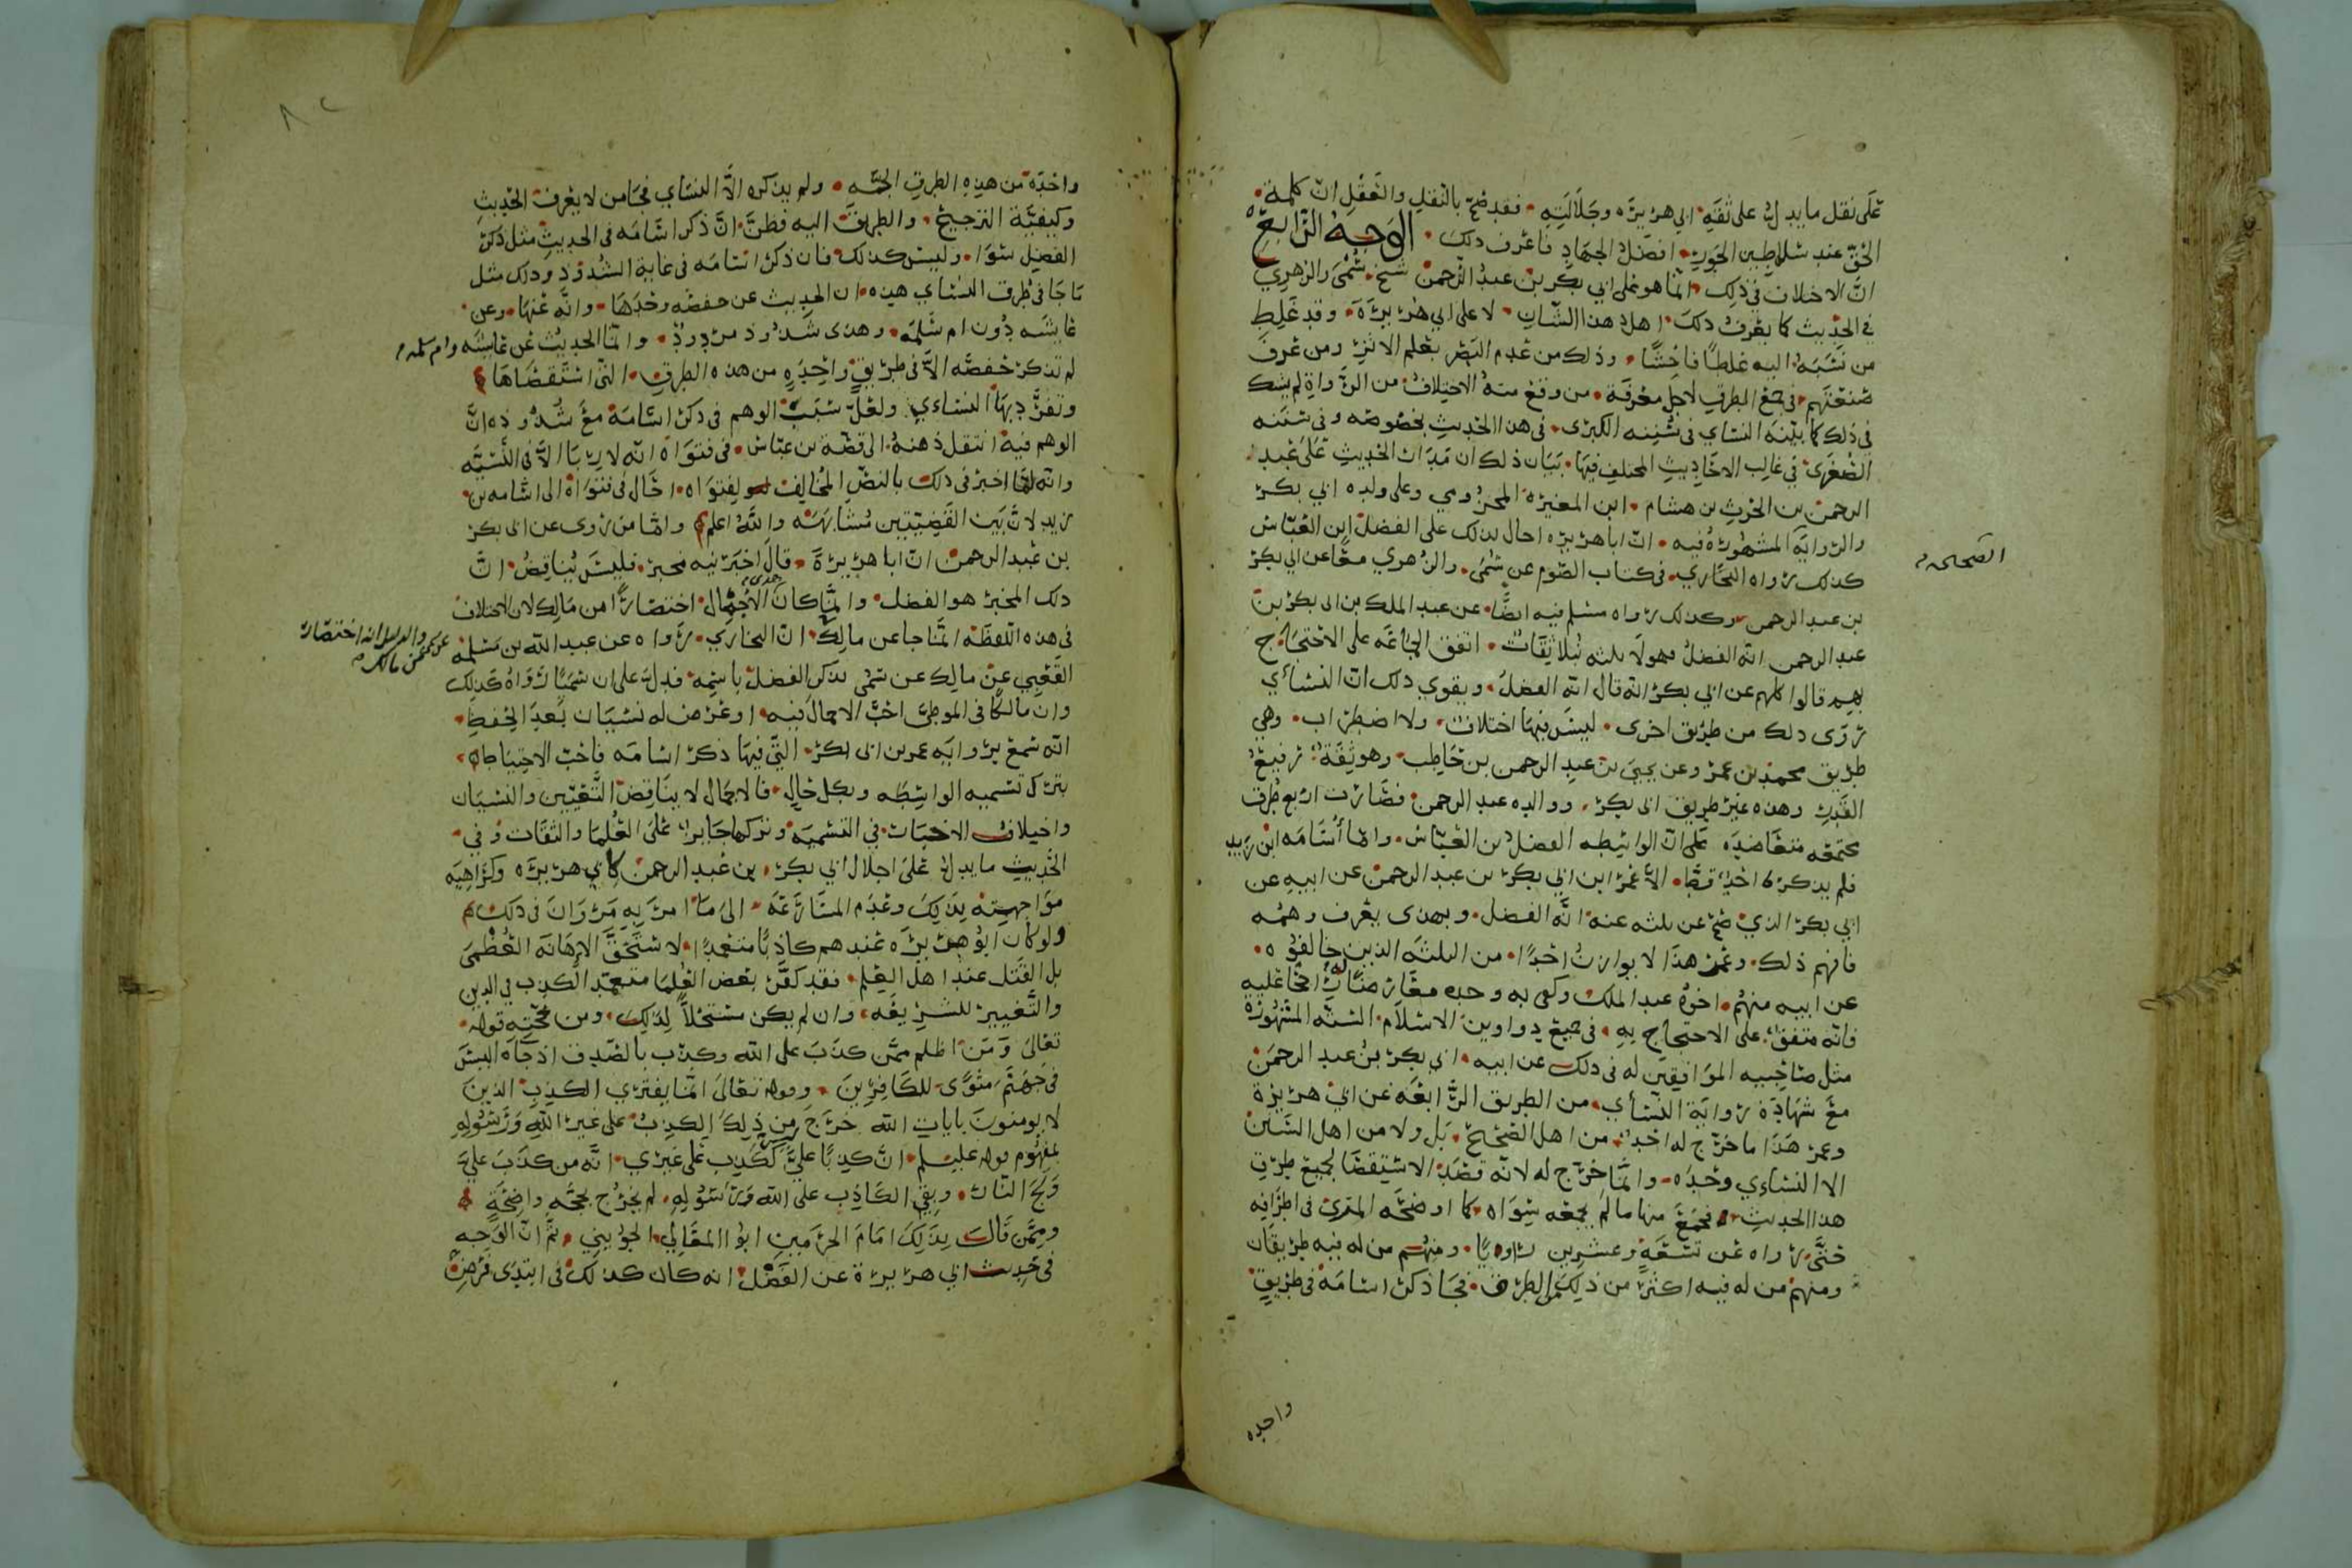 على نقل ما يدل على ثقة ابي هريره وجلالته فقد صح بالنقل والعقل ان كلمة
الحق عند سلاطين الجور افضل الجهاد فاعرف ذلك الوجه الرابع
ان الاختلاف في ذلك انما هو على ابي بكر بن عبد الرحمن شيخ سُمَى والزهري
في الحديث كما يعرف ذلك اهل هذا الشان لا على ابي هريرة وقد غلط
من نسبه اليه غلطا فاحشا وذلك من عدم البصر بعلم الاثر ومن عرف
صنعتهم في جمع الطرق لاجل معرفة من وقع منه الاختلاف من الرواة لم يشك
في ذلك كما بينه النساي في سننه الكبرى في هذا الحديث بخصوصه وفي سننه
الصغرى في غالب الاحاديث المختلف فيها بيان ذلك ان مدار الحديث على عبد
الرحمن بن الحرث بن هشام ابن المغيره المخزومي وعلى ولده ابي بكر
والروايه المشهوره فيه ان ابا هريره احال بذلك على الفضل ابن العباس
الصحيحه
كذلك رواه البخاري في كتاب الصوم عن سُمَى والزهري معا عن ابي بكر
بن عبد الرحمن وكذلك رواه مسلم فيه ايضا عن عبد الملك بن ابي بكر بن
عبد الرحمن انه الفضل فهولا ثلثه نبلا ثقات اتفق الجماعه على الاحتجاج
بهم قالوا كلهم عن ابي بكر انه قال انه الفضل ويقوي ذلك ان النسائي
روى ذلك من طريق اخرى ليس فيها اختلاف ولا اضطراب وهي
طريق محمد بن عمر وعن يحيى بن عبد الرحمن بن حاطب وهو ثقة رفيع
القدر وهذه غير طريق ابي بكر ووالده عبد الرحمن فصارت اربع طرق
مجتمعه متعاضده على ان الواسطه الفضل بن العباس واما أسامه ابن زيد
فلم يذكره احد قط الا عمر ابن ابي بكر بن عبد الرحمن عن ابيه عن
ابي بكر الذي صح عن ثلثه عنه انه الفضل وبهذى يعرف وهمه
فافهم ذلك وعمر هذا لا يوازن احدا من الثلثه الذين خالفوه
عن ابيه منهم اخوه عبد الملك وكفى به وحده معارضا له
فانه متفق على الاحتجاج به في جميع دواوين الاسلام السته المشهوره
مثل صاحبيه الموافقين له في ذلك عن ابيه ابي بكر بن عبد الرحمن
مع شهادة رواية النسأي من الطريق الرابعه عن ابي هريرة
وعمر هذا ما خرج له احد من اهل الصحيح بل ولا من اهل السنن
الا النساءي وحده وانما خرج له لانه قصد الاستقصا لجميع طرق
هذا الحديث فجمع منها ما لم يجمعه سواه كما اوضحه المزي في اطرافه
حتى رواه عن تسعة وعشرين راويا ومنهم من له فيه طريقان
ومنهم من له فيه اكثر من ذلك من الطرق فجا ذكر اسامة في طريق
واحده
٨٢
واحدة من هذه الطرق الجمه ولم يذكره الا النساي فجا من لا يعرف الحديث
وكيفية الترجيح والطريق اليه فظن ان ذكر اسامه في الحديث مثل ذكر
الفضل سوا وليس كذلك فان ذكر اسامه في غاية الشذوذ وذلك مثل
ما جا في طرق النساي هذه ان الحديث عن حفصه وحدها وانه عنها وعن
عايشه دون ام سلمه وهذى شذوذ مردود وانما الحديث عن عايشه وام سلمه
لم تذكر حفصه الا في طريق واحده من هذه الطرق التي استقصاها
وتفرد بها النساءي ولعل سبب الوهم في ذكر اسامة مع شذوذه ان
الوهم فيه انتقل ذهنه الى قصة بن عباس في فتواه انه لا ربا الا في النسيه
وانه لما اخبر في ذلك بالنص المخالف لفتواه احال في فتواه الى اسامه بن
زيد لان بين القضيتين مشابهه والله اعلم واما من روى عن ابي بكر
بن عبد الرحمن ان ابا هريرة قال اخبرنيه مخبر فليس يناقض ان
ذلك المخبر هو الفضل وانما كان الاجمال اختصارا من مالك لان الاختلاف
في هذه اللفظه انما جا عن مالك ان البخاري رواه عن عبد الله بن مسلمه
والدليل انه اختصار
القعبي عن مالك عن سُمى بذكر الفضل باسمه فدل على ان سُميا رواه كذلك
وان مالكا في الموطى احب الاجمال فيه او عرض له نسيان بعد الحفظ
انه سمع بروايه عمر بن ابي بكر التي فيها ذكر اسامه فاحب الاحتياط
بترك تسميه الواسطه وبكل حال فالاجمال لا يناقض التعيين والنسيان
واختلاف الاخبار في التسميه وتركها جايز على العلما والثقات وفي
الحديث ما يدل على اجلال ابي بكر بن عبد الرحمن لابي هريره وكراهيه
مواجهته بذلك وعدم المسارعه الى ما امر به مروان في ذلك
ولو كان ابو هريره عندهم كاذبا متعمدا لاستحق الاهانه العظمى
بل القتل عند اهل العلم فقد كفر بعض العلما متعمد الكذب في الدين
والتغيير للشريعه وان لم يكن مستحلا لذلك ومن حجته قوله
تعالى ومن اظلم ممن كذب على الله وكذب بالصدق اذ جاه اليس
في جهنم مثوى للكافرين وقوله تعالى انما يفتري الكذب الذين
لا يومنون بايات الله خرج من ذلك الكذب على غير الله ورسوله
بمفهوم قوله عليلم ان كذبا علي ليس ككذب على غيري انه من كذب علي
ولج النار وبقي الكاذب على الله ورسوله لم يخرج بحجه واضحة
وممن قال بذلك امام الحرمين ابو المعالي الجويني ثم ان الوجه
في حديث ابي هريرة عن الفضل انه كان كذلك في ابتدى فرض